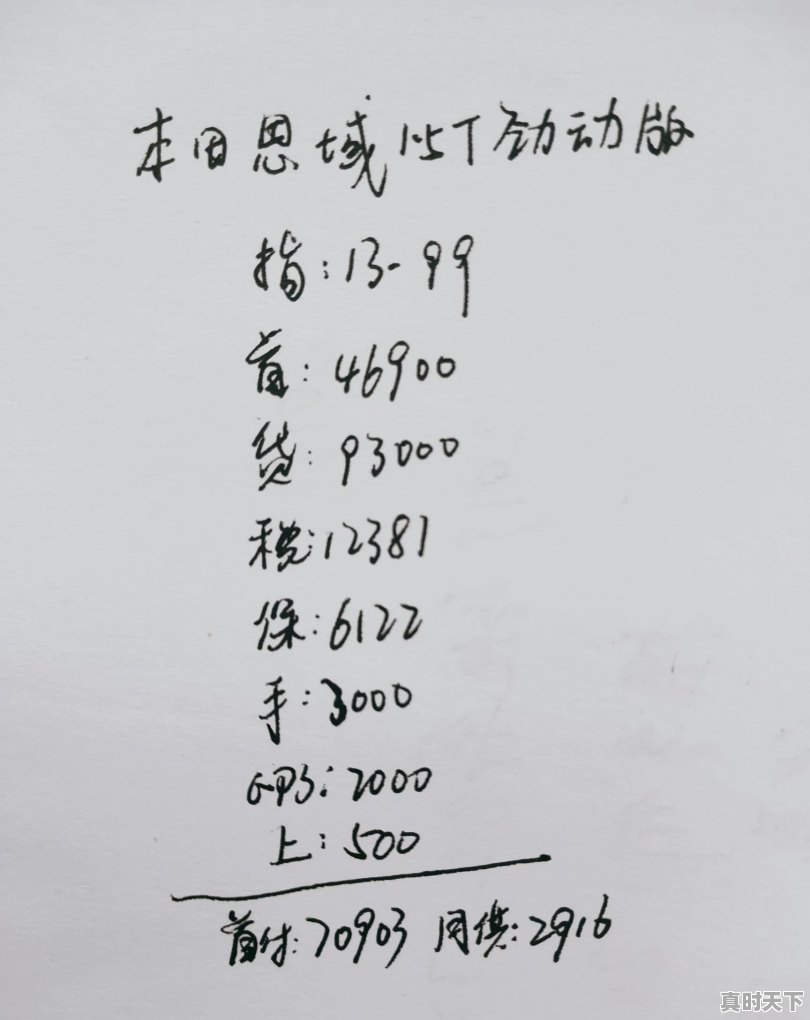 本田思域15T劲动版
指:13-99
首:46900
贷:93000
税:12381
保:6122
手:3000
GPS:2000
上:500
首付:70903 月供:2916
真时天下